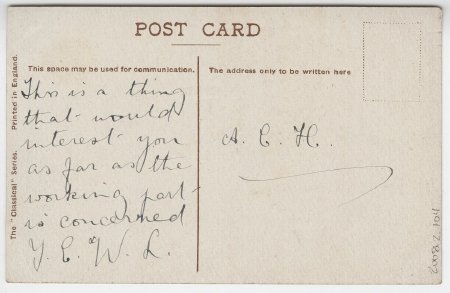 POST CARD
This space may be used for communication.
The address only to be written here
The "Classical" Series. Printed in England.
This is a thing
that would
interest you
as far as the
working part
is concerned
Y. E. W. L.
A. C. H.